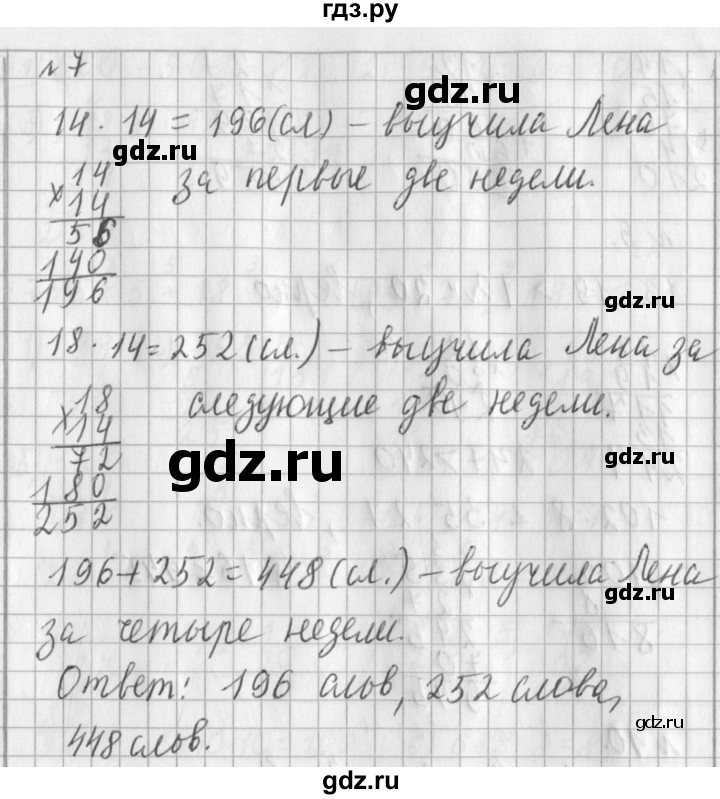 гдз.ру
№ 7
gdz.ru
14 · 14 = 196 (сл) – выучила Лена
gdz.ru
за первые две недели.
14
× 14
56
140
196
gdz.ru
18 · 14 = 252 (сл.) – выучила Лена за
следующие две недели.
18
× 14
72
180
252
gdz.ru
gdz.ru
196 + 252 = 448 (сл.) – выучила Лена
gdz.ru
за четыре недели.
Ответ: 196 слов, 252 слова,
gdz.ru
448 слов.
gdz.ru